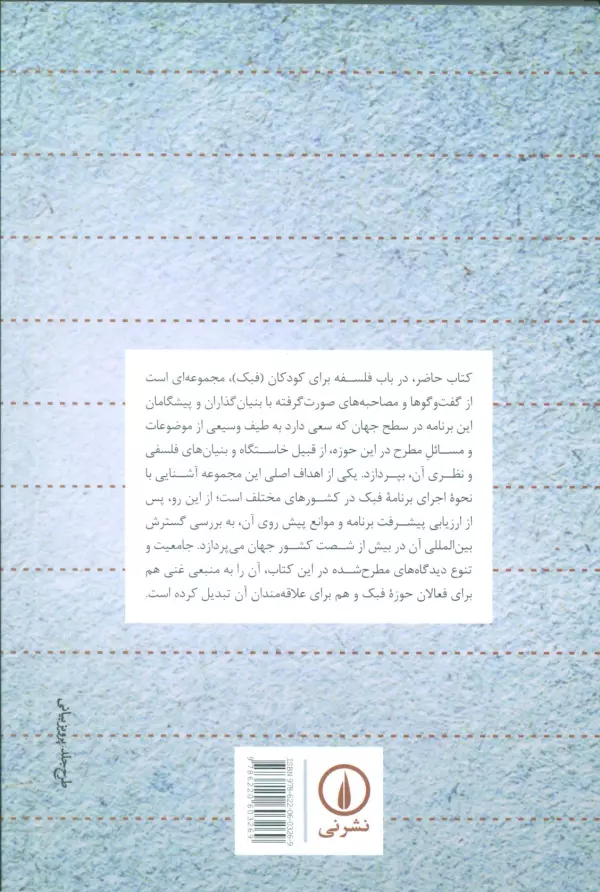 کتاب حاضر، در باب فلسفه برای کودکان (فبک)، مجموعه‌ای است
از گفت‌وگوها و مصاحبه‌های صورت‌گرفته با بنیان‌گذاران و پیشگامان
این برنامه در سطح جهان که سعی دارد به طیف وسیعی از موضوعات
و مسائلِ مطرح در این حوزه، از قبیل خاستگاه و بنیان‌های فلسفی
و نظری آن، بپردازد. یکی از اهداف اصلی این مجموعه آشنایی با
نحوهٔ اجرای برنامهٔ فبک در کشورهای مختلف است؛ از این رو، پس
از ارزیابی پیشرفت برنامه و موانع پیش روی آن، به بررسی گسترش
بین‌المللی آن در بیش از شصت کشور جهان می‌پردازد. جامعیت و
تنوع دیدگاه‌های مطرح‌شده در این کتاب، آن را به منبعی غنی هم
برای فعالان حوزهٔ فبک و هم برای علاقه‌مندان آن تبدیل کرده است.
طرح جلد: پرویز بیانی
نشرنی
ISBN 978-622-06-0326-9
9786220603269